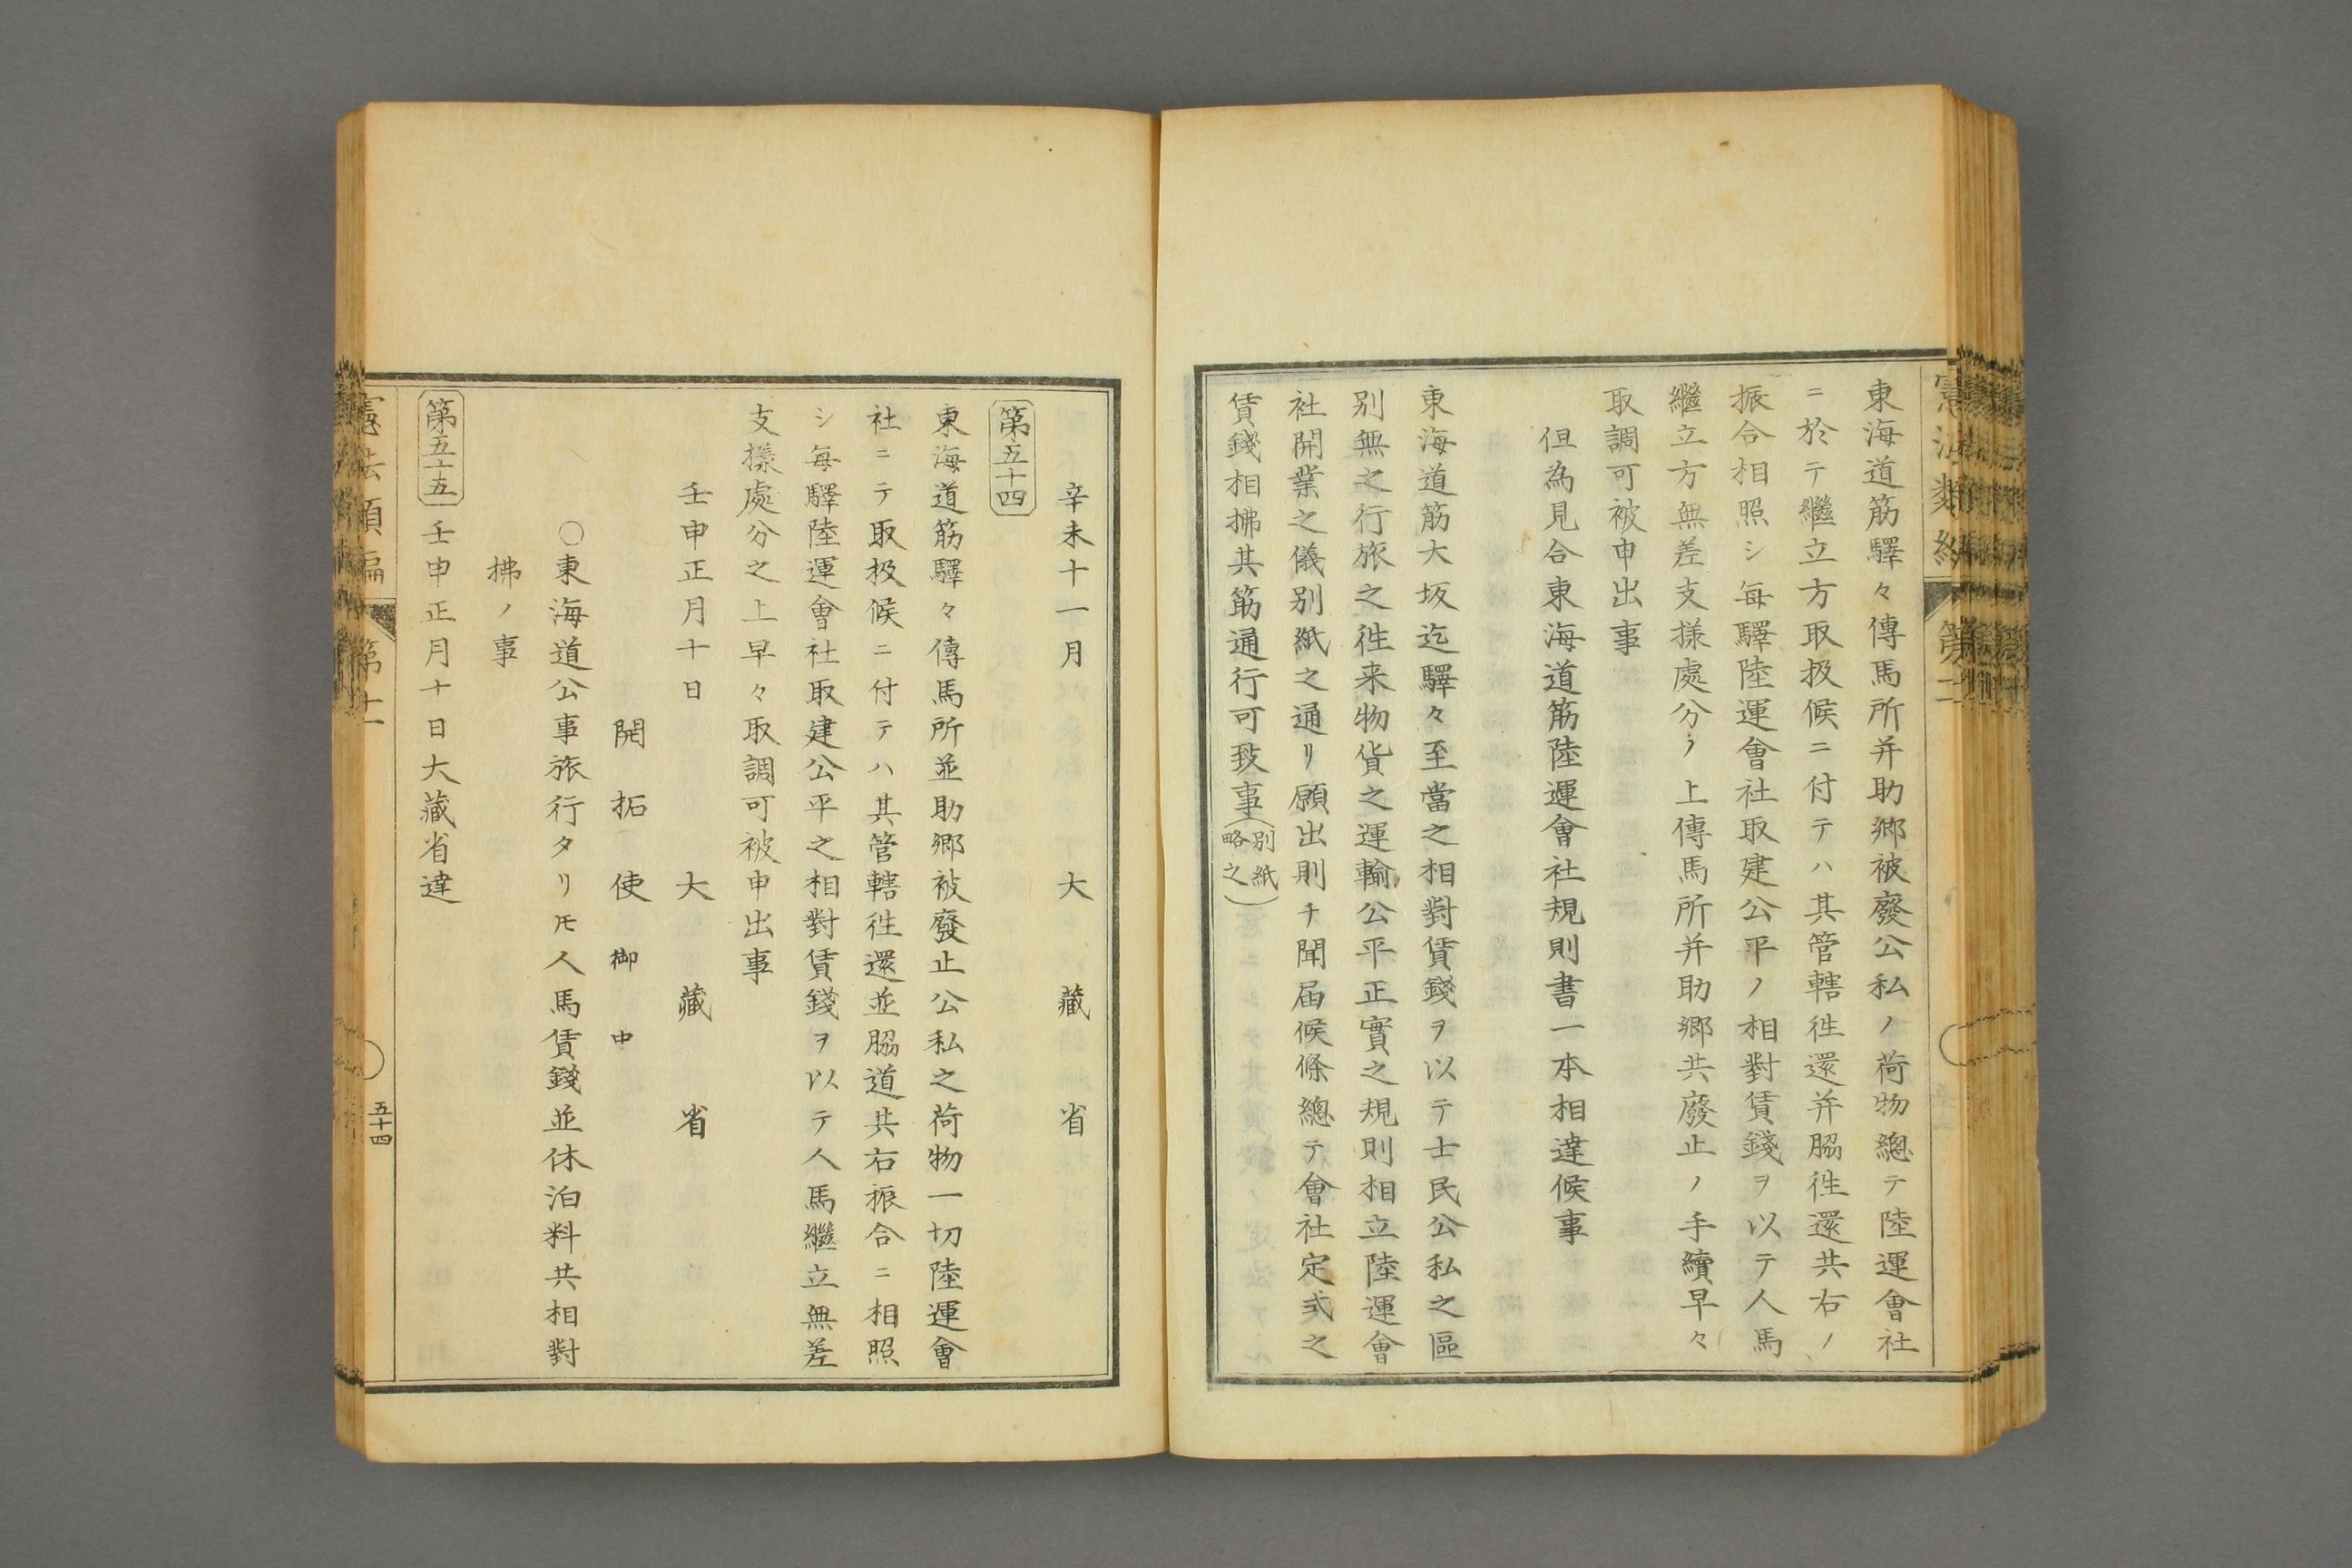 東海道筋驛々傳馬所并助郷被廢公私ノ荷物總テ陸運會社
ニ於テ繼立方取扱候ニ付テハ其管轄徃還并脇徃還共右ノ
振合相照シ毎驛陸運會社取建公平ノ相對賃錢ヲ以テ人馬
繼立方無差支樣處分ノ上傳馬所并助郷共廢止ノ手續早々
取調可被申出事
但為見合東海道筋陸運會社規則書一本相達候事
東海道筋大坂迄驛々至當之相對賃錢ヲ以テ士民公私之區
別無之行旅之徃来物貨之運輸公平正實之規則相立陸運會
社開業之儀別紙之通リ願出則チ聞届候條總テ會社定式之
賃錢相拂其筋通行可致事(別紙略之)
辛未十一月 大藏省
第五十四
東海道筋驛々傳馬所並助郷被廢止公私之荷物一切陸運會
社ニテ取扱候ニ付テハ其管轄徃還並脇道共右振合ニ相照
シ毎驛陸運會社取建公平之相對賃錢ヲ以テ人馬繼立無差
支樣處分之上早々取調可被申出事
壬申正月十日 大藏省
開拓使御中
○東海道公事旅行タリ𪜈人馬賃錢並休泊料共相對
拂ノ事
第五十五 壬申正月十日大藏省達
憲法類編 第十二
五十四